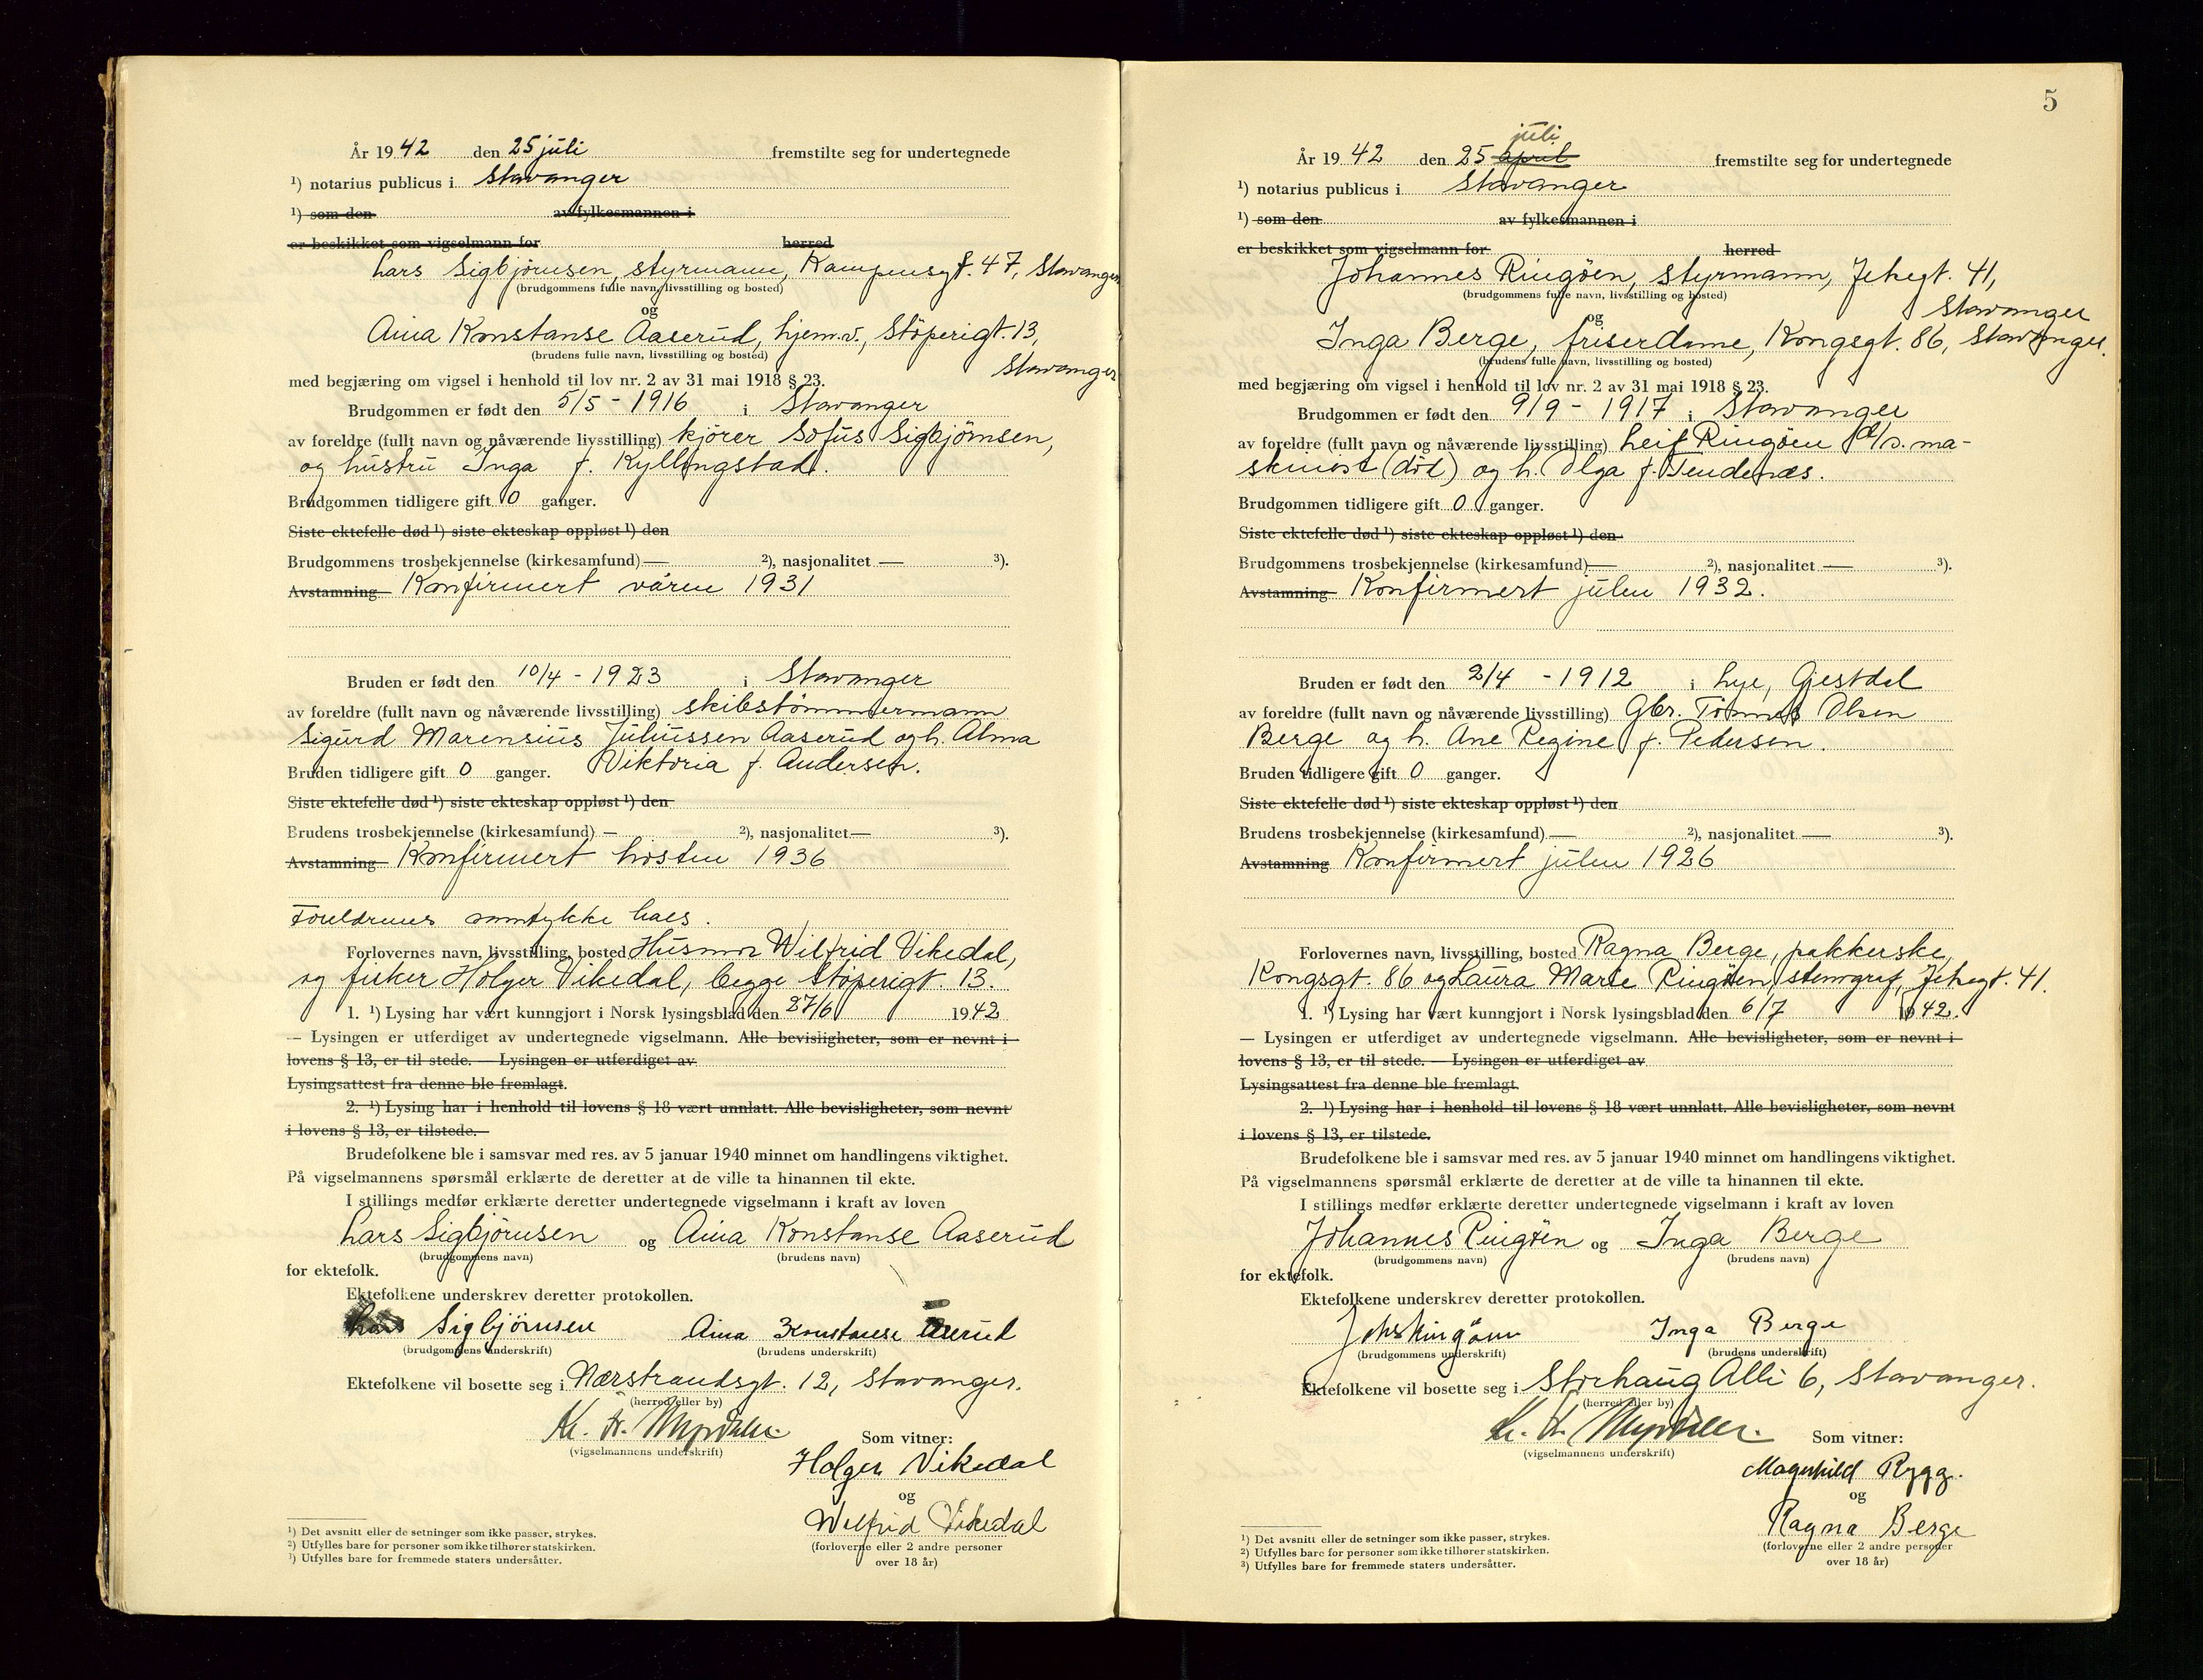 År 1942 den 25 juli fremstilte seg for undertegnede
¹) notarius publicus i Stavanger
¹) som den av fylkesmannen i
er beskikket som vigselmann for herred
Lars Sigbjørnsen, styrmann, Kampensgt. 47, Stavanger
(brudgommens fulle navn, livsstilling og bosted)
og
Aina Konstanse Aaserud, hjem.v., Støperigt. 13,
(brudens fulle navn, livsstilling og bosted)
Stavanger
med begjæring om vigsel i henhold til lov nr. 2 av 31 mai 1918 § 23.
Brudgommen er født den 5/5 - 1916 i Stavanger
av foreldre (fullt navn og nåværende livsstilling) kjører Sofus Sigbjørnsen,
og hustru Inga f. Kyllingstad.
Brudgommen tidligere gift 0 ganger.
Siste ektefelle død ¹) siste ekteskap oppløst ¹) den
Brudgommens trosbekjennelse (kirkesamfund) — ²), nasjonalitet — ³).
Avstamning Konfirmert våren 1931
Bruden er født den 10/4 - 1923 i Stavanger
av foreldre (fullt navn og nåværende livsstilling) skibstømmermann
Sigurd Marensius Juliussen Aaserud og h. Alma
Bruden tidligere gift 0 ganger. Viktoria f. Andersen.
Siste ektefelle død ¹) siste ekteskap oppløst ¹) den
Brudens trosbekjennelse (kirkesamfund) — ²), nasjonalitet — ³).
Avstamning Konfirmert høsten 1936
Foreldrenes samtykke haes.
Forlovernes navn, livsstilling, bosted Husmor Wilfrid Vikedal,
og fisker Holger Vikedal, begge Støperigt. 13.
1. ¹) Lysing har vært kunngjort i Norsk lysingsblad den 27/6 1942
— Lysingen er utferdiget av undertegnede vigselmann. Alle bevisligheter, som er nevnt i
lovens § 13, er til stede. — Lysingen er utferdiget av
Lysingsattest fra denne ble fremlagt.
2. ¹) Lysing har i henhold til lovens § 18 vært unnlatt. Alle bevisligheter, som nevnt
i lovens § 13, er tilstede. —
Brudefolkene ble i samsvar med res. av 5 januar 1940 minnet om handlingens viktighet.
På vigselmannens spørsmål erklærte de deretter at de ville ta hinannen til ekte.
I stillings medfør erklærte deretter undertegnede vigselmann i kraft av loven
Lars Sigbjørnsen og Aina Konstanse Aaserud
(brudgommens navn) (brudens navn)
for ektefolk.
Ektefolkene underskrev deretter protokollen.
Lars Sigbjørnsen Aina Konstanse Aaserud
(brudgommens underskrift) (brudens underskrift)
Ektefolkene vil bosette seg i Nærstrandsgt. 12, Stavanger.
(herred eller by)
(vigselmannens underskrift) Som vitner:
Holger Vikedal
og
Wilfrid Vikedal
(forloverne eller 2 andre personer
over 18 år)
¹) Det avsnitt eller de setninger som ikke passer, strykes.
²) Utfylles bare for personer som ikke tilhører statskirken.
³) Utfylles bare for fremmede staters undersåtter.
5
juli
År 1942 den 25 april fremstilte seg for undertegnede
¹) notarius publicus i Stavanger
¹) som den av fylkesmannen i
er beskikket som vigselmann for herred
Johannes Ringøen, styrmann, Jelsegt. 41,
(brudgommens fulle navn, livsstilling og bosted)
Stavanger
og
Inga Berge, friserdame, Kongsgt. 86, Stavanger.
(brudens fulle navn, livsstilling og bosted)
med begjæring om vigsel i henhold til lov nr. 2 av 31 mai 1918 § 23.
Brudgommen er født den 9/9 - 1917 i Stavanger
av foreldre (fullt navn og nåværende livsstilling) Leif Ringøen d/s. ma-
skinist (død) og h. Olga f. Tendenæs.
Brudgommen tidligere gift 0 ganger.
Siste ektefelle død ¹) siste ekteskap oppløst ¹) den
Brudgommens trosbekjennelse (kirkesamfund) — ²), nasjonalitet — ³).
Avstamning Konfirmert julen 1932.
Bruden er født den 2/4 - 1912 i Lye, Gjestdal
av foreldre (fullt navn og nåværende livsstilling) Gbr. Tønnes Olsen
Berge og h. Ane Regine f. Pedersen.
Bruden tidligere gift 0 ganger.
Siste ektefelle død ¹) siste ekteskap oppløst ¹) den
Brudens trosbekjennelse (kirkesamfund) — ²), nasjonalitet — ³).
Avstamning Konfirmert julen 1926
Forlovernes navn, livsstilling, bosted Ragna Berge, pakkerske,
Kongsgt. 86 og Laura Marie Ringøen, stenograf, Jelsegt. 41.
1. ¹) Lysing har vært kunngjort i Norsk lysingsblad den 6/7 1942.
— Lysingen er utferdiget av undertegnede vigselmann. Alle bevisligheter, som er nevnt i
lovens § 13, er til stede. — Lysingen er utferdiget av
Lysingsattest fra denne ble fremlagt.
2. ¹) Lysing har i henhold til lovens § 18 vært unnlatt. Alle bevisligheter, som nevnt
i lovens § 13, er tilstede.
Brudefolkene ble i samsvar med res. av 5 januar 1940 minnet om handlingens viktighet.
På vigselmannens spørsmål erklærte de deretter at de ville ta hinannen til ekte.
I stillings medfør erklærte deretter undertegnede vigselmann i kraft av loven
Johannes Ringøen og Inga Berge
(brudgommens navn) (brudens navn)
for ektefolk.
Ektefolkene underskrev deretter protokollen.
Johs Ringøen Inga Berge
(brudgommens underskrift) (brudens underskrift)
Ektefolkene vil bosette seg i Storhaug Alli 6, Stavanger.
(herred eller by)
(vigselmannens underskrift) Som vitner:
Magnhild Rygg.
og
Ragna Berge
(forloverne eller 2 andre personer
over 18 år)
¹) Det avsnitt eller de setninger som ikke passer, strykes.
²) Utfylles bare for personer som ikke tilhører statskirken.
³) Utfylles bare for fremmede staters undersåtter.